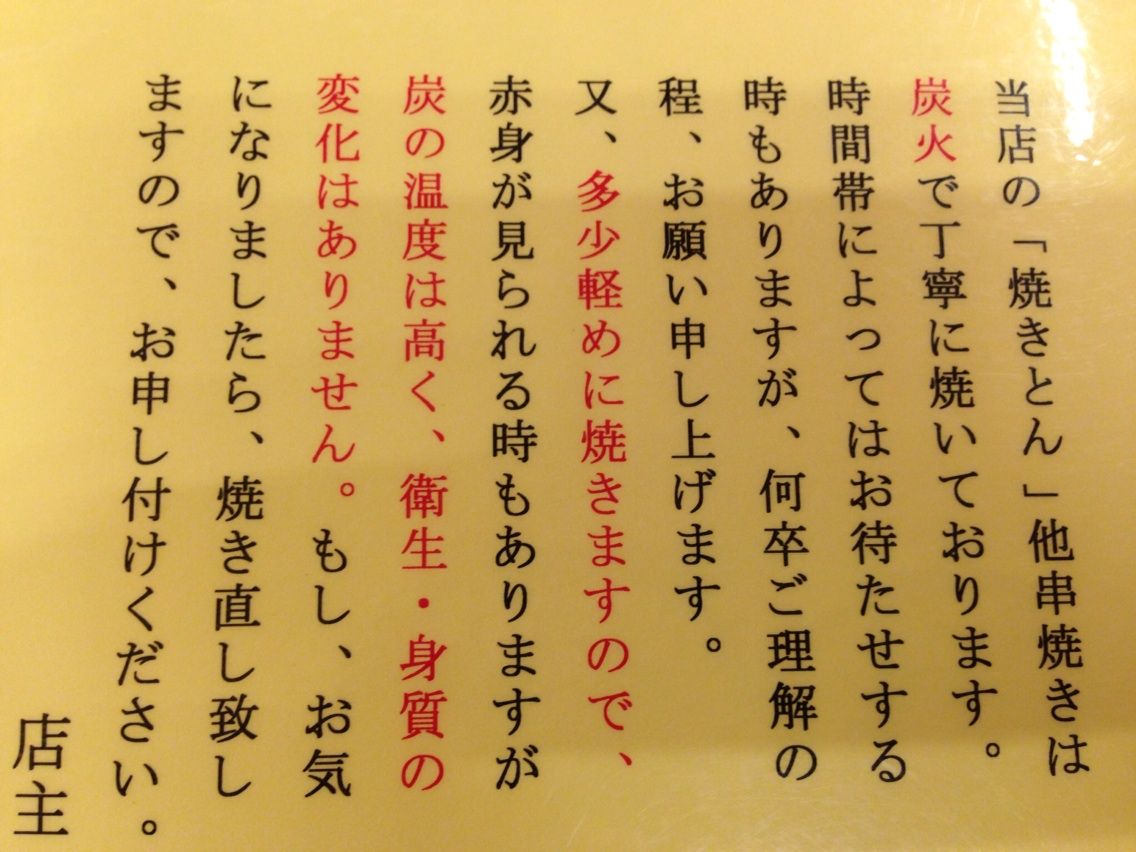 当店の「焼きとん」他串焼きは
炭火で丁寧に焼いております。
時間帯によってはお待たせする
時もありますが、何卒ご理解の
程、お願い申し上げます。
又、多少軽めに焼きますので、
赤身が見られる時もありますが
炭の温度は高く、衛生・身質の
変化はありません。もし、お気
になりましたら、焼き直し致し
ますので、お申し付けください。
店主